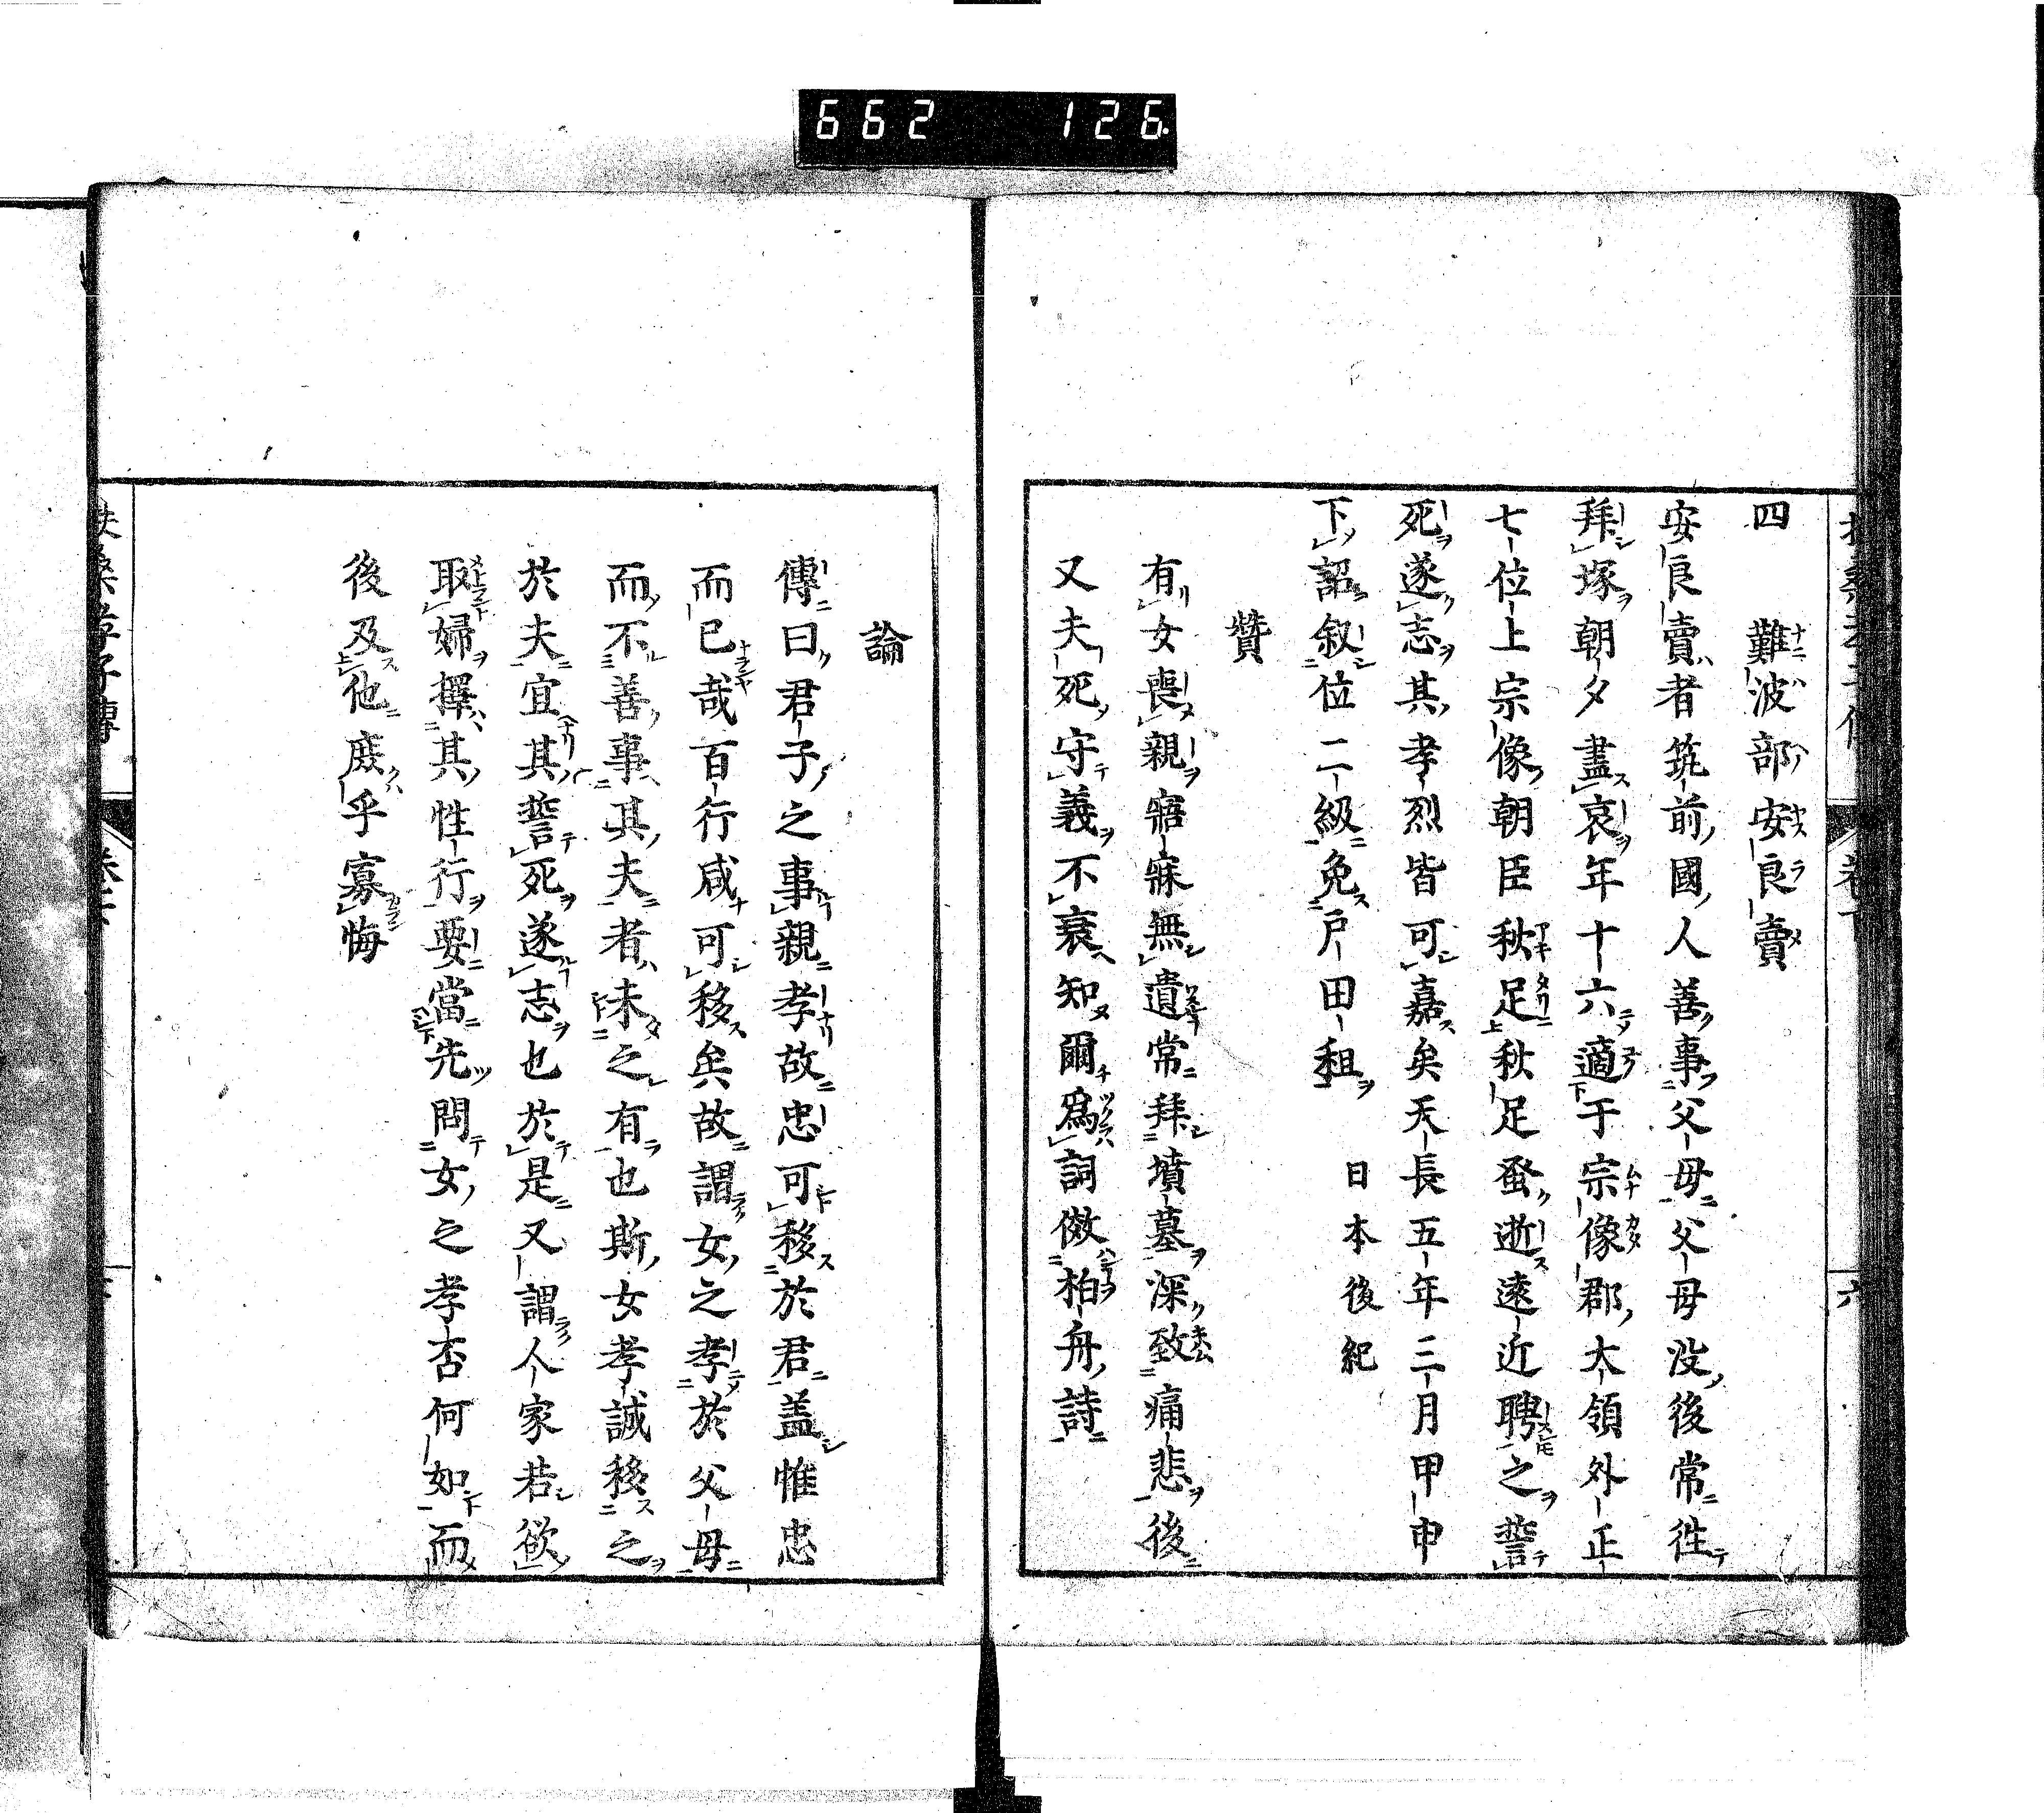 662 126.
四 難波部安良賣
安良賣者筑前國人善事父母父母没後常徃
拜塚朝夕盡哀年十六適于宗像郡大領外正
七位上宗像朝臣秋足秋足蚤逝遠近聘之誓
死遂志其孝烈皆可嘉矣天長五年三月甲申
下詔叙位二級免戸田租 日本後紀
贊
有女喪親寤寐無遺常拜墳墓深致痛悲後
又夫死守義不衰知爾為詞倣柏舟詩
論
傳曰君子之事親孝故忠可移於君盖惟忠
而已哉百行咸可移矣故謂女之孝於父母
而不善事其夫者未之有也斯女孝誠移之
於夫宜其誓死遂志也於是又謂人家若欲
取婦擇其性行要當先問女之孝否何如而
後及他庶乎寡悔
扶桑孝子傳